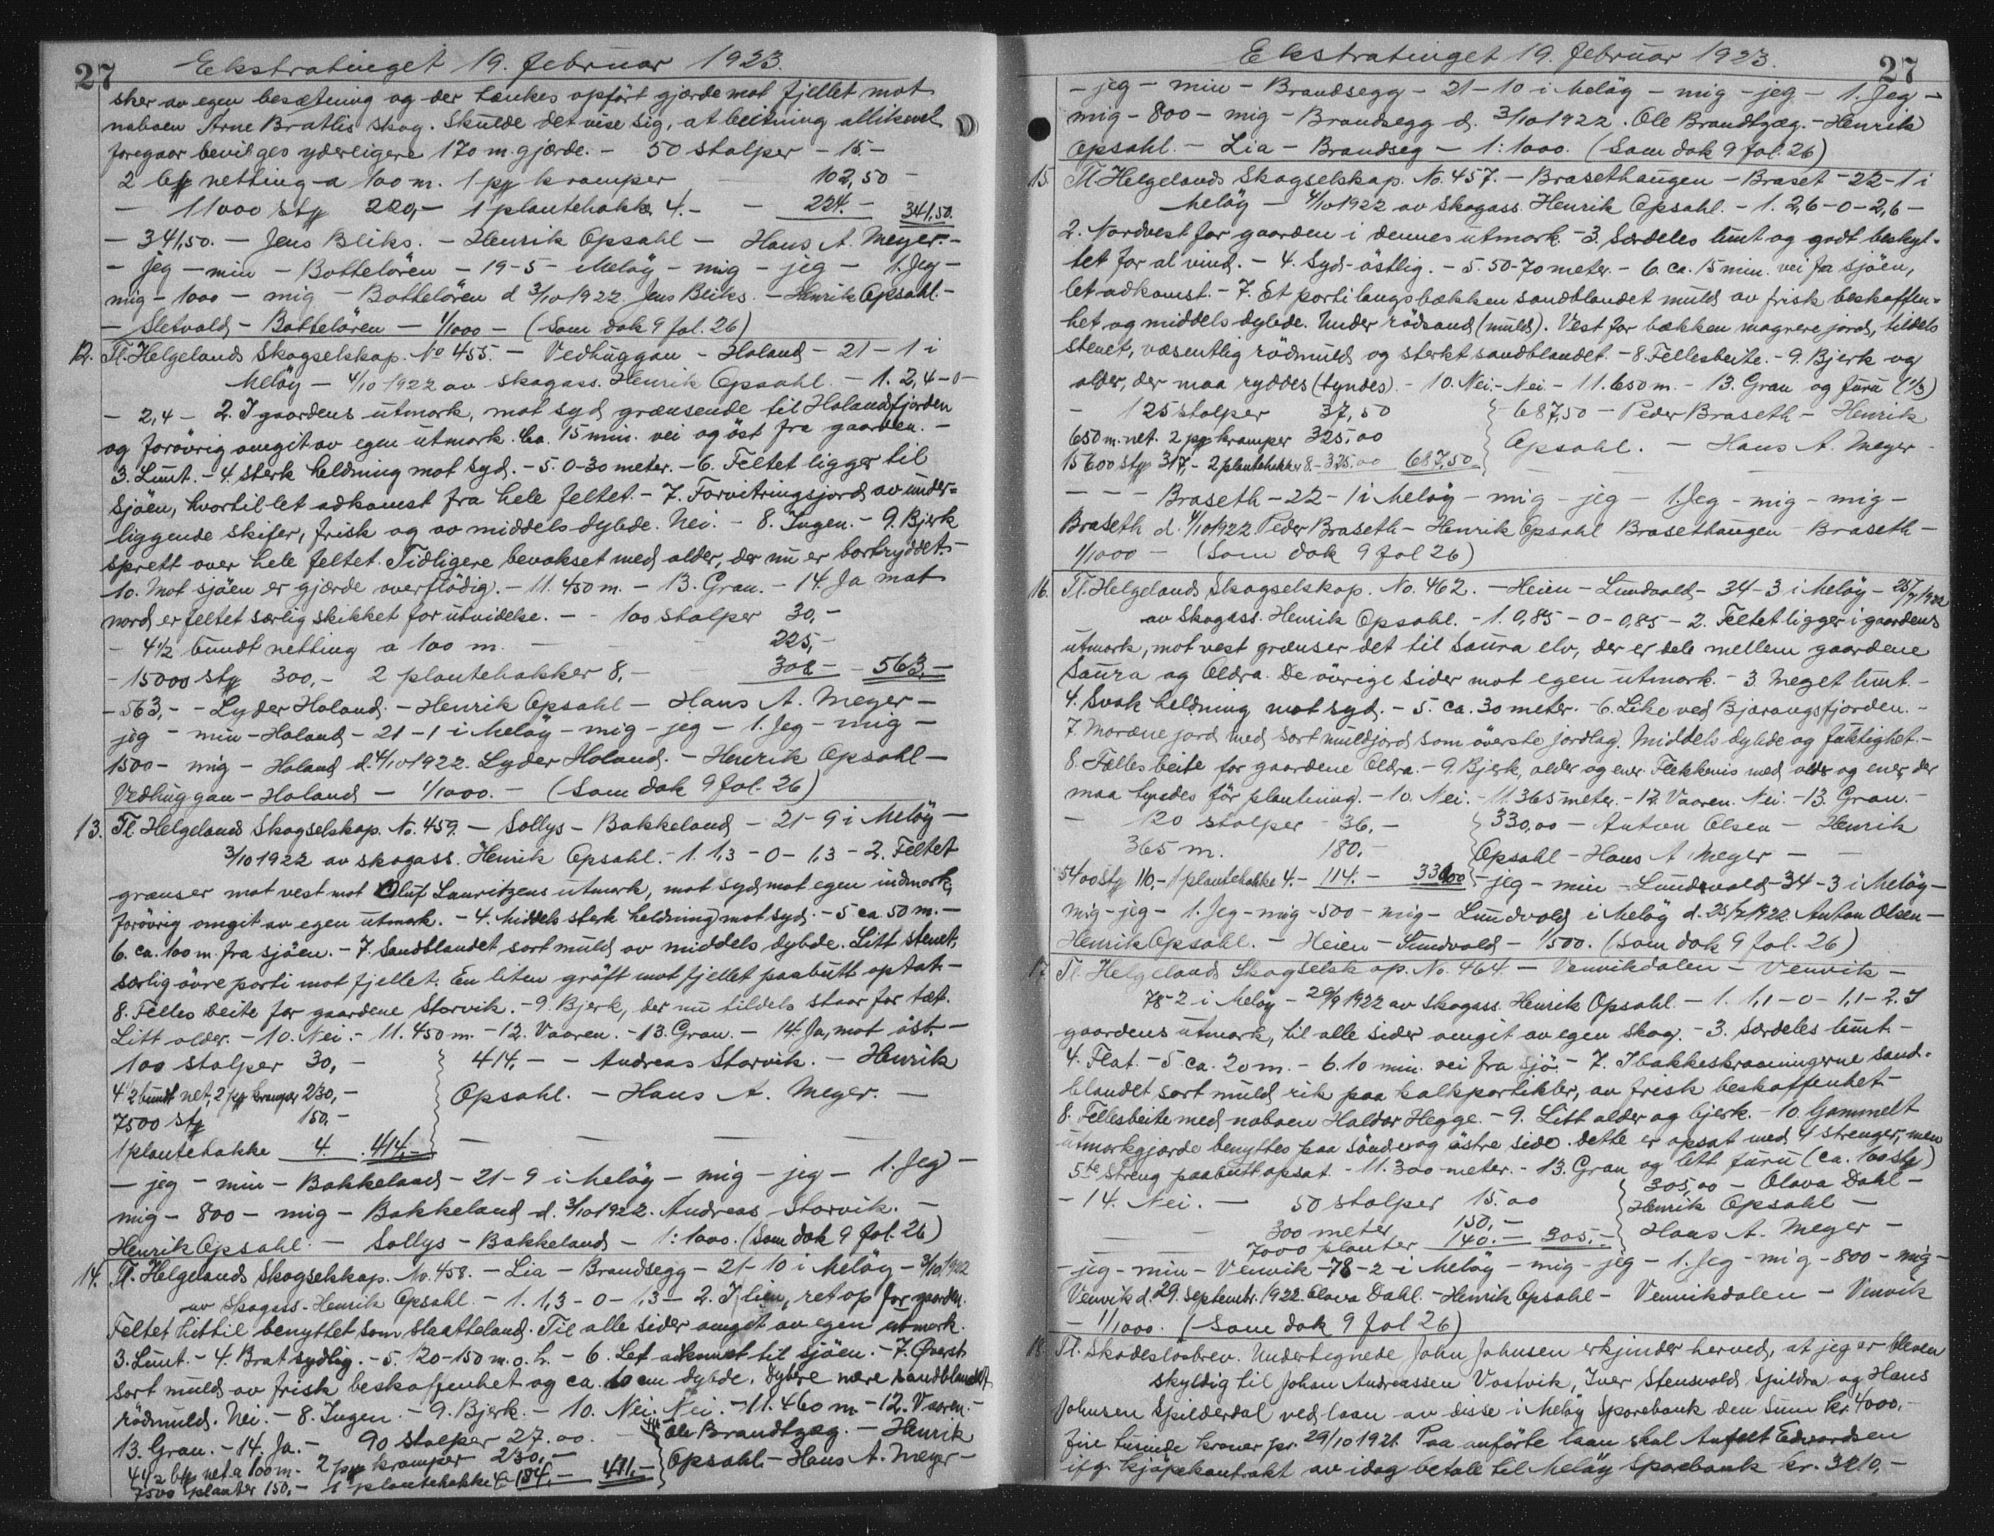 27 Ekstratinget 19. februar 1923.
sker av egen besætning og der tænkes opført gjærde mot fjellet mot
naboen Arne Bratlis skog. Skulde det vise sig, at beitning allikevel
foregaar bevilges yderligere 170 m. gjærde. - 50 stolper - 15.-
2 bdt netting a 100 m. 1 pk kramper - 102,50 -
- 11000 stk 220,- 1 plantehakke 4.- - 224.- 341.50.
- 341,50. - Jens Bliks. - Henrik Opsahl - Hans A. Meyer.-
- jeg - min - Bottelören - 19-5 - Melöy - mig - jeg - 1. Jeg -
mig - 1000 - mig - Bottelören d 3/10 1922. Jens Bliks. - Henrik Opsahl.-
- Sletvold - Bottelören - 1/1000 - (Som dok 9 fol. 26)
12. Tl. Helgelands Skogselskap. No 455. - Vedhuggan - Holand - 21 - 1 i
Melöy - 4/10 1922 av skogass. Henrik Opsahl. - 1. 2,4 - 0 -
- 2,4 - 2. I gaardens utmark, mot syd grænsende til Holandsfjorden
og forövrig omgit av egen utmark. Ca. 15 min. vei og öst fra gaarden. -
3. Lunt. - 4. Sterk heldning mot syd. - 5. 0-30 meter. - 6. Feltet ligger til
sjöen, hvortil let adkomst fra hele feltet. - 7. Forvitringsjord av under-
liggende skifer, frisk og av middels dybde. Nei. - 8. Ingen. - 9. Bjerk
sprett over hele feltet. Tidligere bevokset med older, der nu er bortryddet. -
10. Mot sjöen er gjærde overflödig. - 11. 450 m. - 13. Gran. - 14. Ja mot
nord er feltet særlig skikket for utvidelse. - - 100 stolper 30,-
- 4 1/2 bundt netting a 100 m. - - 225,-
- 15000 stk 300,- 2 plantehakker 8,- 308 - - 563,-
- 563,- - Lyder Holand. - Henrik Opsahl - Hans A. Meyer -
jeg - min - Holand - 21 - 1 i Melöy - mig - jeg - 1. Jeg - mig -
1500 - mig - Holand d. 4/10 1922. Lyder Holand. - Henrik Opsahl -
Vedhuggan - Holand - 1/1000. - (Som dok 9 fol. 26)
13. Tl. Helgelands Skogselskap. No. 459. - Sollys - Bakkeland - 21-9 i Melöy -
3/10 1922 av skogass. Henrik Opsahl. - 1. 1,3 - 0 - 1,3 - 2. Feltet
grænser mot vest mot Oluf Lauritzens utmark, mot syd mot egen indmark,
forövrig omgit av egen utmark. - 4. Middels sterk heldning mot syd. - 5 ca 50 m. -
6. ca. 100 m. fra sjöen. - 7. Sandblandet sort muld av middels dybde. Litt stenet,
særlig övre parti mot fjellet. En liten gröft mot fjellet paabutt optat -
8. Felles beite for gaardene Storvik. - 9 Bjerk, der nu tildels staar for tæt.
Litt older. - 10. Nei. - 11. 450 m. - 12. Vaaren. - 13. Gran. - 14. Ja, mot öst. -
100 stolper 30,- 414,- - Andreas Storvik. - Henrik
4 1/2 bundt net, 2 pk kramper 230,- Opsahl. - Hans A. Meyer. -
7500 stk 150,-
1 plantehakke 4. 414,-
- jeg - min - Bakkeland - 21-9 i Melöy - mig - jeg - 1. Jeg -
mig - 800 - mig - Bakkeland d. 3/10 1922. Andreas Storvik. -
Henrik Opsahl. - Sollys - Bakkeland - 1:1000. (Som dok 9 fol. 26)
14. Tl. Helgelands Skogselskap. No. 458. - Lia - Brandsegg - 21-10 i Melöy - 3/10 1922
av Skogass. Henrik Opsahl - 1. 1,3 - 0 - 1,3 - 2. I lien, ret op for gaarden.
Feltet hittil benyttet som slaatteland. Til alle sider omgit av egen utmark.
3. Lunt. - 4. Brat sydlig. - 5. 120-150 m. o. h. - 6. Let adkomst til sjöen. - 7. Överst
sort muld av frisk beskaffenhet og ca. 10 cm dybde. Dypere mere sandblandet
rödmuld. Nei. - 8. Ingen. - 9. Bjerk. - 10. Nei. Nei. - 11. 460 m - 12. Vaaren. -
13. Gran. - 14. Ja. - 90 stolper 27.00. Ole Brandtzæg. - Henrik
4 1/2 bdt net. a 100 m. 2 pk kramper 230,- Opsahl. - Hans A. Meyer -
7500 planter 150,- 1 plantehakke 4 - 184,- 411,-
Ekstratinget 19. februar 1923. 27
- jeg - min - Brandsegg - 21-10 i Melöy - mig - jeg - 1. Jeg -
mig - 800 - mig - Brandsegg d. 3/10 1922. Ole Brandtzæg. - Henrik
Opsahl. - Lia - Brandseg - 1:1000. (Som dok 9 fol. 26)
15. Tl. Helgelands Skogselskap. No. 457. - Brasethaugen - Braset - 22-1 i
Melöy - 4/10 1922 av Skogass. Henrik Opsahl. - 1. 2,6 - 0 - 2,6 -
2. Nordvest for gaarden i dennes utmark. - 3. Særdeles lunt og godt beskyt-
tet for al vind. - 4. Syd-östlig. - 5. 50-70 meter. - 6. ca. 15 min. vei fra sjöen,
let adkomst. - 7. Et parti langs bækken sandblandet muld av frisk beskaffen-
het og middels dybde. Under rödsand (muld). Vest for bækken magrere jord, tildels
stenet, væsentlig rödmuld og sterkt sandblandet. - 8. Fellesbeite. - 9. Bjerk og
older, der maa ryddes (tyndes). - 10. Nei. - Nei - 11. 650 m. - 13. Gran og furu (1/3)
- 125 stolper 37,50 687,50 - Peder Braseth - Henrik
650 m. net. 2 pk kramper 325,00 Opsahl. - Hans A. Meyer -
15600 stk 317,- 2 plantehakker 8 - 325.00 687,50
- - - Braseth - 22 - 1 i Melöy - mig - jeg - 1. Jeg - mig - mig -
Braseth d. 4/10 1922 Peder Braseth - Henrik Opsahl Brasethaugen - Braseth -
1/1000 - (Som dok 9 fol 26)
16. Tl. Helgelands Skogselskap. No. 462. - Heien - Lundvold - 34-3 i Melöy - 25/7 1922
av Skogass. Henrik Opsahl. - 1. 0,85 - 0 - 0,85 - 2. Feltet ligger i gaardens
utmark, mot vest grænser det til Saura elv, der er dele mellem gaardene
Saura og Oldra. De övrige sider mot egen utmark. - 3. Meget lunt. -
4. Svak heldning mot syd. - 5. ca. 30 meter. - 6. Like ved Bjærangsfjorden. -
7. Moræne jord med sort muldjord som överste jordlag. Middels dybde og fuktighet. -
8. Fælles beite for gaardene Oldra. - 9. Bjerk, older og ener. Flekkevis med older og ener der
maa tyndes för plantning. - 10. Nei. - 11. 365 meter. - 12. Vaaren. Nei. - 13. Gran. -
- 120 stolper 36,- 330,00 - Anton Olsen - Henrik
365 m. 180,- Opsahl - Hans A Meyer -
5400 stk 110,- 1 plantehakke 4.- 114.- 330,00 - jeg - min - Lundvold - 34-3 i Melöy -
mig - jeg - 1. Jeg - mig - 500 - mig - Lundvold i Melöy d. 25/7 1922 Anton Olsen -
Henrik Opsahl. - Heien - Lundvold - 1/500. (Som dok 9 fol. 26)
17. Tl. Helgelands Skogselskap. No. 464. - Venvikdalen - Venvik -
78-2 i Melöy - 29/9 1922 av Skogass. Henrik Opsahl. - 1. 1,1 - 0 - 1,1 - 2. I
gaardens utmark, til alle sider omgit av egen skog. - 3. Særdeles lunt. -
4. Flat. - 5 ca. 20 m. - 6. 10 min. vei fra sjö. - 7. I bakkeskraaningerne sand-
blandet sort muld rik paa kalkpartikler, av frisk beskaffenhet. -
8. Fellesbeite med naboen Haldor Hegge. - 9. Litt older og bjerk. - 10. Gammelt
utmarkgjærde benyttes paa söndre og östre side. Dette er opsat med 4 strenger, men
5te streng paabutt opsat. - 11. 300 meter. - 13. Gran og litt furu (ca. 100 stk)
- 14. Nei. - 50 stolper 15.00 305,00 - Olava Dahl -
300 meter 150,- Henrik Opsahl -
7000 planter 140.- 305,- Hans A. Meyer -
- jeg - min - Venvik - 78-2 i Melöy - mig - jeg - 1. Jeg - mig - 800 - mig -
Venvik d. 29. septembr. 1922. Olava Dahl. - Henrik Opsahl - Venvikdalen - Venvik
- 1/1000. (Som dok 9 fol 26)
18. Tl. Skadeslosbrev. Undertegnede John Johnsen erkjender herved, at jeg er bleven
skyldig til Johan Andreassen Vastvik, Iver Stensvold Spildra og Hans
Johnsen Spilderdal ved laan av disse i Melöy Sparebank den Sum kr. 4000,-
fire tusinde kroner pr. 29/10 1921. Paa anförte laan skal Anfelt Edvardsen
ifg. kjöpekontrakt av idag betale til Melöy Sparebank kr. 3210,-